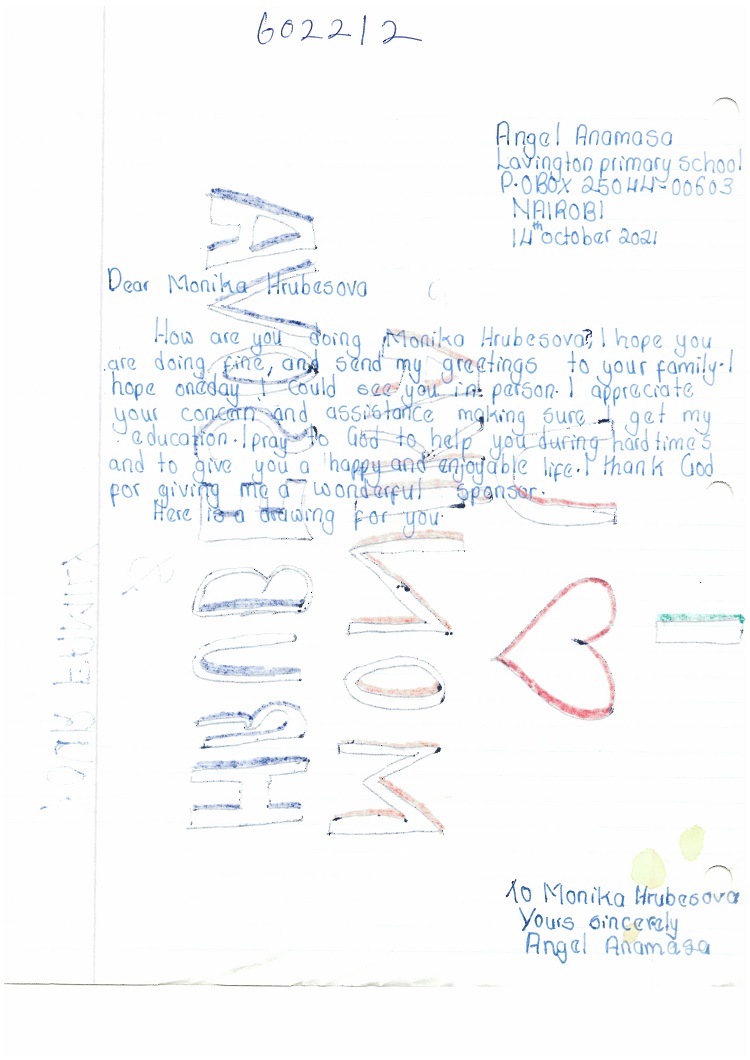 602212
Angel Anamasa
Lavington primary school
P.O BOX 25044-00603
NAIROBI
14th october 2021
Dear Monika Hrubesova
How are you doing Monika Hrubesova? I hope you
are doing fine, and send my greetings to your family. I
hope oneday I could see you in person. I appreciate
your concern and assistance making sure I get my
education. I pray to God to help you during hard times
and to give you a happy and enjoyable life. I thank God
for giving me a wonderful sponsor.
Here is a drawing for you.
I
U
MONIKA
HRUBESOVA
To Monika Hrubesova
Yours sincerely
Angel Anamasa